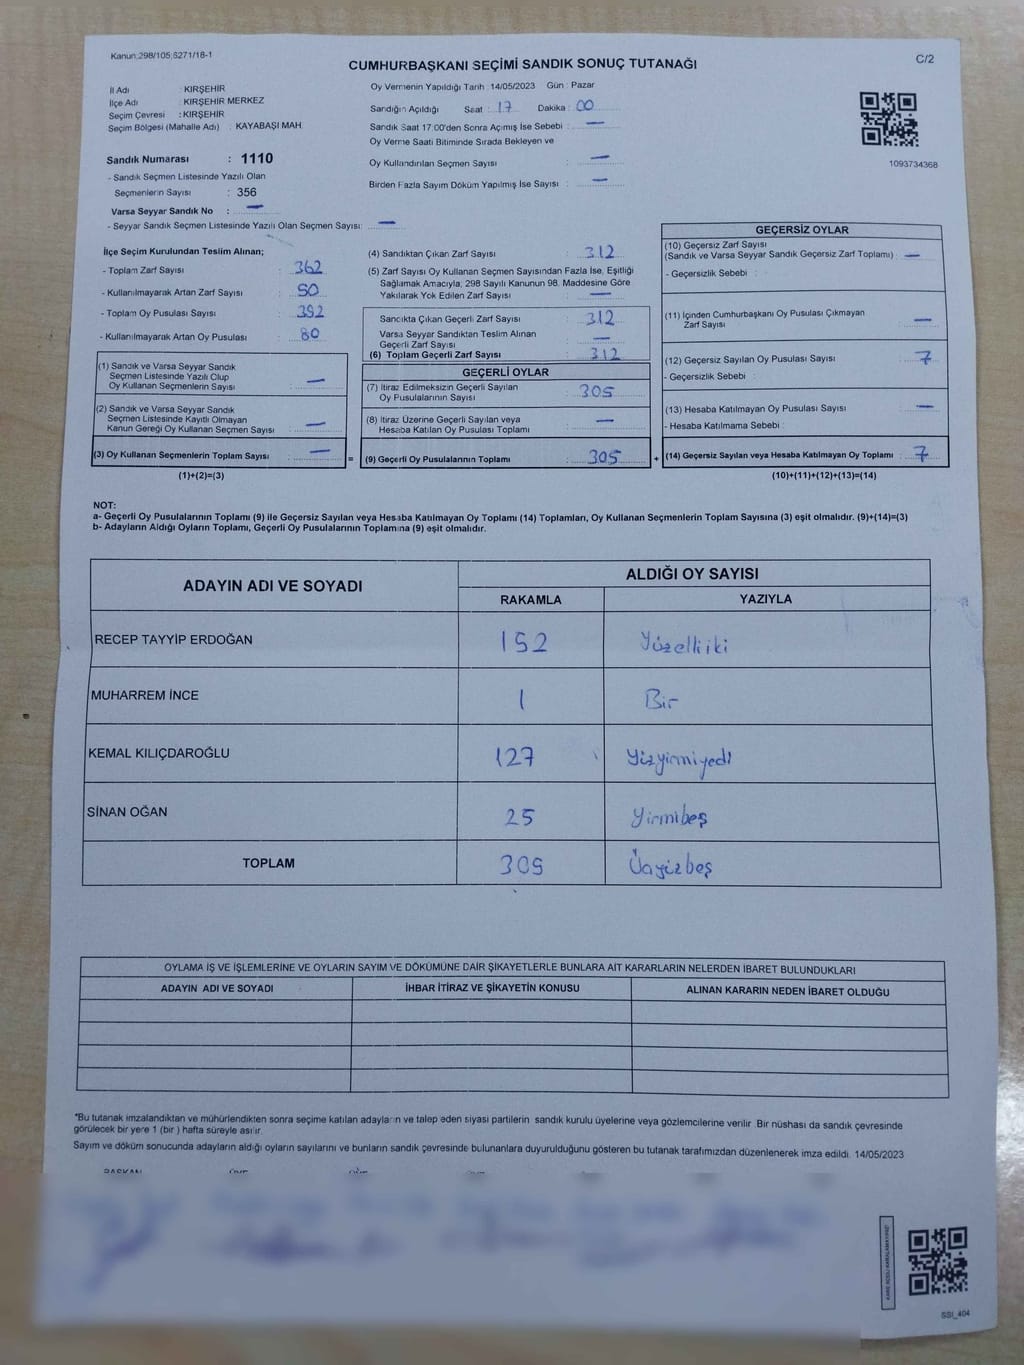 Kanun:298/105;6271/18-1
C/2
CUMHURBAŞKANI SEÇİMİ SANDIK SONUÇ TUTANAĞI
İl Adı : KIRŞEHİR
İlçe Adı : KIRŞEHİR MERKEZ
Seçim Çevresi : KIRŞEHİR
Seçim Bölgesi (Mahalle Adı) : KAYABAŞI MAH.
Oy Vermenin Yapıldığı Tarih : 14/05/2023 Gün : Pazar
Sandığın Açıldığı Saat : 17 Dakika : 00
Sandık Saat 17:00'den Sonra Açımış İse Sebebi : —
Oy Verme Saati Bitiminde Sırada Bekleyen ve
Oy Kullandırılan Seçmen Sayısı : —
Birden Fazla Sayım Döküm Yapılmış İse Sayısı : —
1093734368
Sandık Numarası : 1110
- Sandık Seçmen Listesinde Yazılı Olan
Seçmenlerin Sayısı : 356
Varsa Seyyar Sandık No : —
- Seyyar Sandık Seçmen Listesinde Yazılı Olan Seçmen Sayısı: —
İlçe Seçim Kurulundan Teslim Alınan;
- Toplam Zarf Sayısı : 362
- Kullanılmayarak Artan Zarf Sayısı : 50
- Toplam Oy Pusulası Sayısı : 392
- Kullanılmayarak Artan Oy Pusulası : 80
(1) Sandık ve Varsa Seyyar Sandık
Seçmen Listesinde Yazılı Olup
Oy Kullanan Seçmenlerin Sayısı : —
(2) Sandık ve Varsa Seyyar Sandık
Seçmen Listesinde Kayıtlı Olmayan
Kanun Gereği Oy Kullanan Seçmen Sayısı : —
(3) Oy Kullanan Seçmenlerin Toplam Sayısı : —
(1)+(2)=(3)
=
(4) Sandıktan Çıkan Zarf Sayısı : 312
(5) Zarf Sayısı Oy Kullanan Seçmen Sayısından Fazla İse, Eşitliği
Sağlamak Amacıyla, 298 Sayılı Kanunun 98. Maddesine Göre
Yakılarak Yok Edilen Zarf Sayısı : —
Sandıkta Çıkan Geçerli Zarf Sayısı : 312
Varsa Seyyar Sandıktan Teslim Alınan
Geçerli Zarf Sayısı : —
(6) Toplam Geçerli Zarf Sayısı : 312
GEÇERLİ OYLAR
(7) İtiraz Edilmeksizin Geçerli Sayılan
Oy Pusulalarının Sayısı : 305
(8) İtiraz Üzerine Geçerli Sayılan veya
Hesaba Katılan Oy Pusulası Toplamı : —
(9) Geçerli Oy Pusulalarının Toplamı : 305
+
GEÇERSİZ OYLAR
(10) Geçersiz Zarf Sayısı
(Sandık ve Varsa Seyyar Sandık Geçersiz Zarf Toplamı) : —
- Geçersizlik Sebebi :
(11) İçinden Cumhurbaşkanı Oy Pusulası Çıkmayan
Zarf Sayısı : —
(12) Geçersiz Sayılan Oy Pusulası Sayısı : 7
- Geçersizlik Sebebi :
(13) Hesaba Katılmayan Oy Pusulası Sayısı : —
- Hesaba Katılmama Sebebi :
(14) Geçersiz Sayılan veya Hesaba Katılmayan Oy Toplamı : 7
(10)+(11)+(12)+(13)=(14)
NOT:
a- Geçerli Oy Pusulalarının Toplamı (9) ile Geçersiz Sayılan veya Hesaba Katılmayan Oy Toplamı (14) Toplamları, Oy Kullanan Seçmenlerin Toplam Sayısına (3) eşit olmalıdır. (9)+(14)=(3)
b- Adayların Aldığı Oyların Toplamı, Geçerli Oy Pusulalarının Toplamına (9) eşit olmalıdır.
ADAYIN ADI VE SOYADI
ALDIĞI OY SAYISI
RAKAMLA YAZIYLA
RECEP TAYYİP ERDOĞAN 152 Yüzelliiki
MUHARREM İNCE 1 Bir
KEMAL KILIÇDAROĞLU 127 Yüzyirmiyedi
SİNAN OĞAN 25 Yirmibeş
TOPLAM 305 Üçyüzbeş
OYLAMA İŞ VE İŞLEMLERİNE VE OYLARIN SAYIM VE DÖKÜMÜNE DAİR ŞİKAYETLERLE BUNLARA AİT KARARLARIN NELERDEN İBARET BULUNDUKLARI
ADAYIN ADI VE SOYADI İHBAR İTİRAZ VE ŞİKAYETİN KONUSU ALINAN KARARIN NEDEN İBARET OLDUĞU
*Bu tutanak imzalandıktan ve mühürlendikten sonra seçime katılan adayların ve talep eden siyasi partilerin sandık kurulu üyelerine veya gözlemcilerine verilir. Bir nüshası da sandık çevresinde
görülecek bir yere 1 (bir ) hafta süreyle asılır.
Sayım ve döküm sonucunda adayların aldığı oyların sayılarını ve bunların sandık çevresinde bulunanlara duyurulduğunu gösteren bu tutanak tarafımızdan düzenlenerek imza edildi. 14/05/2023
SSI_404